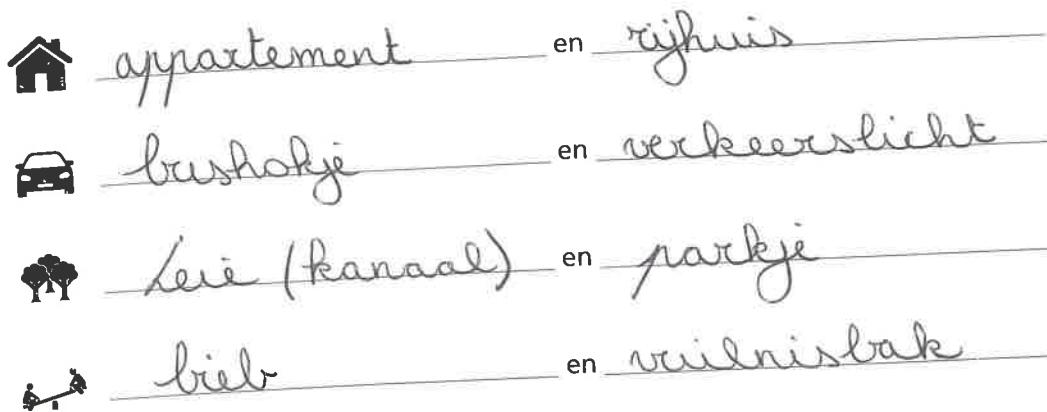 appartement en rijhuis
bushokje en verkeerslicht
Leie (kanaal) en parkje
bieb en vuilnisbak